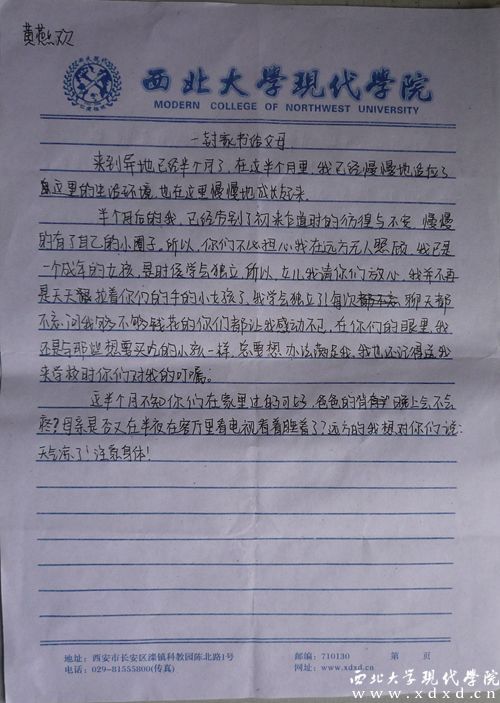 黄燕欢
西北大學現代學院
MODERN COLLEGE OF NORTHWEST UNIVERSITY
一封家书给父母
来到异地已经半个月了，在这半个月里，我已经慢慢地适应了
这里的生活环境，也在这里慢慢地成长起来。
半个月后的我，已经告别了初来乍道时的彷徨与不安，慢慢
的有了自己的小圈子。所以，你们不必担心我在远方无人照顾，我已是
一个成年的女孩，是时候学点独立，所以，女儿我请你们放心，我并不再
是天天拉着你们的手的小女孩了，我学点独立了！每次聊天都
不忘问我够不够钱花的你们都让我感动不已，在你们的眼里，我
还是与那些想要买吃的小孩一样，总要想办法满足我，我也还记得送我
来学校时你们对我的叮嘱。
这半个月不知你们在家里过的可好，爸爸的背晚上会不会
疼？母亲是否又在半夜在客厅里看电视看着睡着了？远方的我想对你们说：
天气凉了！注意身体！
地址：西安市长安区滦镇科教园陈北路1号 邮编：710130 第 页
电话：029-81555800(传真) 网址：www.xdxd.cn
西北大学现代学院
www.xdxd.cn